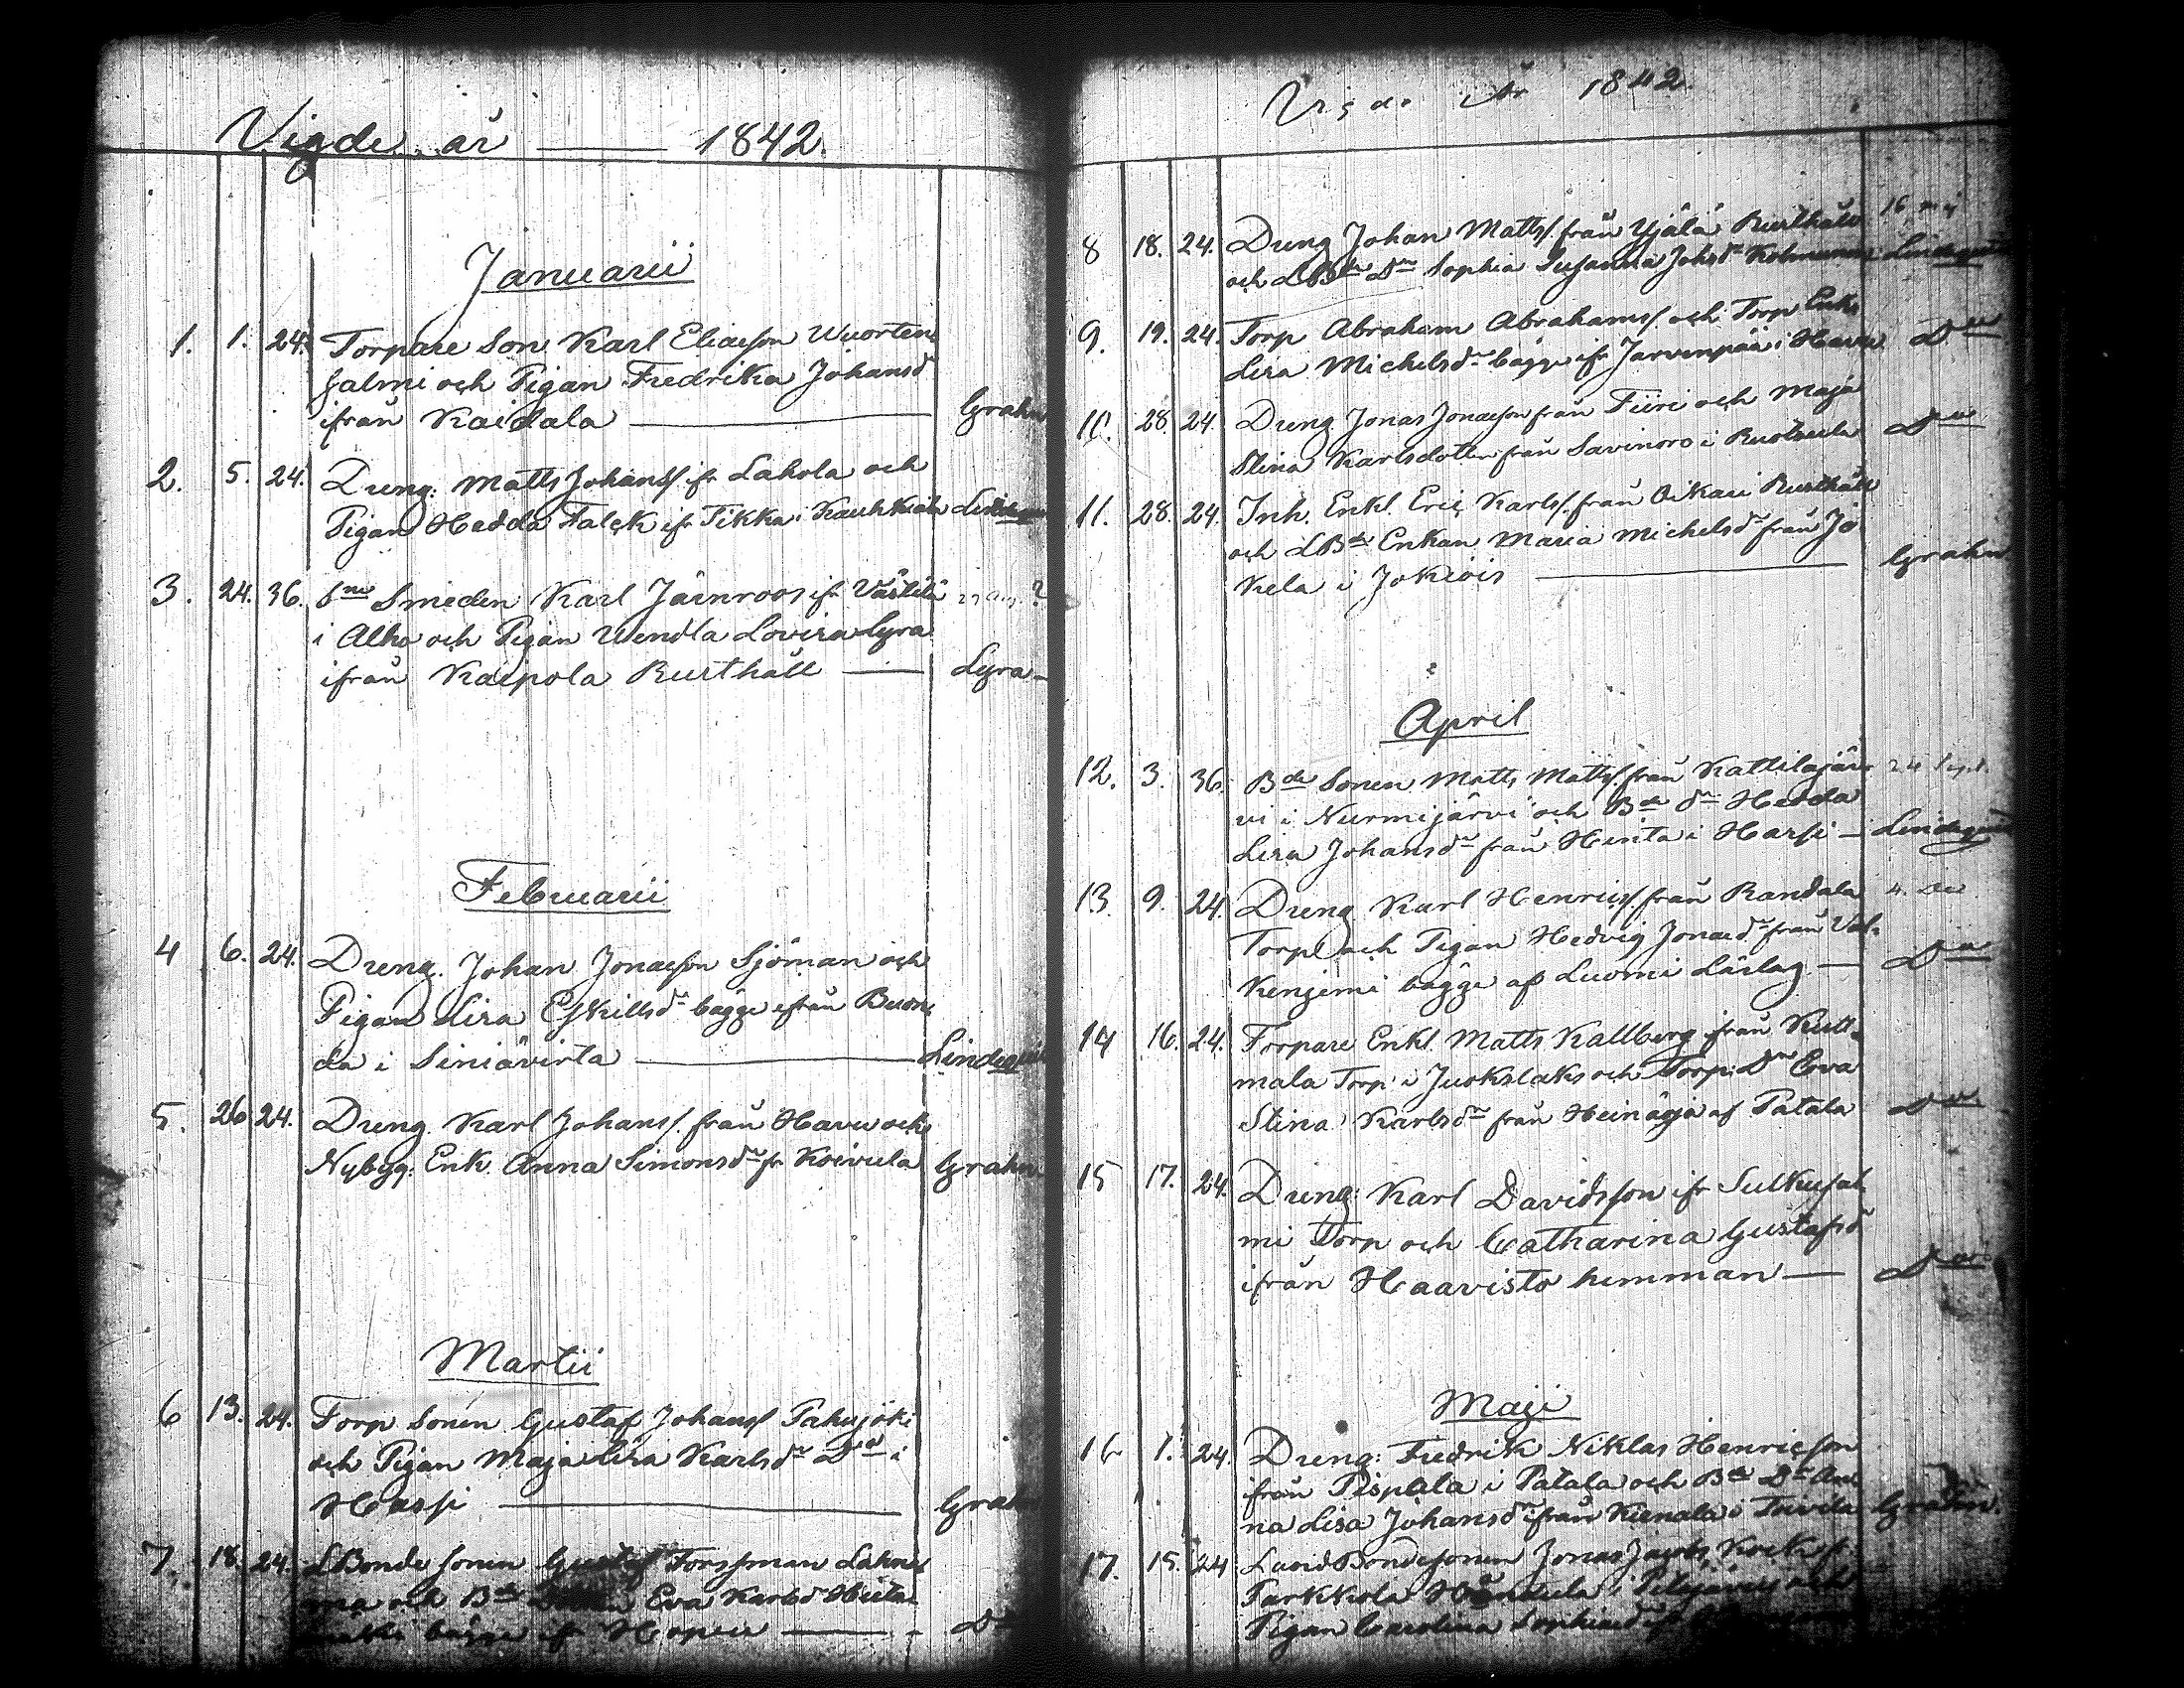 Vigde år — 1842.
Januarii
1. 1. 24. Torpare Son Karl Eliaeson Wuorten
salmi och Pigan Fredrika Johansd
ifrån Kaidala — Grahn
2. 5. 24. Dreng: Matts Johanss ifr Lahola och
Pigan Hedda Falck ifr Tikka i
3. 24. 36. Smeden Karl Järnroos ifr
i Alho och Pigan Wendla Lovisa Lyra
ifrån Kaipola Rusthåll — Lyra
Februarii
4 6. 24. Dreng. Johan Jonaeson Sjöman och
Pigan Lisa Eskillsdr bägge ifrån Buon
da i Siniävirta — Lindeqvist
5. 26 24. Dreng. Karl Johanss. från Havu och
Nybygg: Enk. Anna Simonsdr fr Koivula Grahn
Martii
6 13. 24. Torp Sonen Gustaf Johanss Pahujoki
och Pigan Maja Lisa Karlsdr Do i
Hassi — Grahn
7. 18. 24. LBonde sonen Gustaf Forssman
och Bde Eva Karlsd
bägge ifr — Do
Vigde År 1842.
8 18. 24. Dreng Johan Matts/. från Yjälä Rusthåll 16 maj
och LBde Dr Sophia Susanna Johsdr Lindeqvist
9. 19. 24. Torp Abraham Abrahams/. och Torp Enk.
Lisa Michelsdr bägge ifr Jarvenpää i Do
10. 28. 24. Dreng Jonas Jonaeson från Tiiri och Maja
Stina Karlsdotter från Savinoro i Ruotsula Do
11. 28. 24. Inh. Enkl. Eric Karls/. från Oikari Rusthåll
och LBde Enkan Maria Michelsdr från Jo
kela i Jokiois — Grahn
April
12. 3. 36. Bde Sonen Matts Matts/. från Kattilajär 24 Sept.
vi i Nurmijärvi och Bde dr Hedda
Lisa Johansdr från i Harsi — Lindeqvist
13. 9. 24. Dreng Karl Henrics/. från Randala
Torp och Pigan Hedvig Jonaedr från Val
kenjemi bägge af Luomi Lärlag — Do
14 16. 24. Torpare Enkl. Matts Kallberg från Kutt
mala Torp i Juokslaks och Torp. Dr Eva
Stina Karlsdr från Heinäoja af Patala Do
15 17. 24. Dreng: Karl Davidsson ifr Sulkusal
mi Torp och Catharina Gustafsd
ifrån Haavisto hemman — Do
Maji
16 1. 24. Dreng: Fredrik Niklas Henricson
från Pispala i Patala och Bde Dr An
na Lisa Johansdr ifrån i Grahn.
17. 15. 24 Jonas Jacobs
Tarkkola
Pigan Carolina